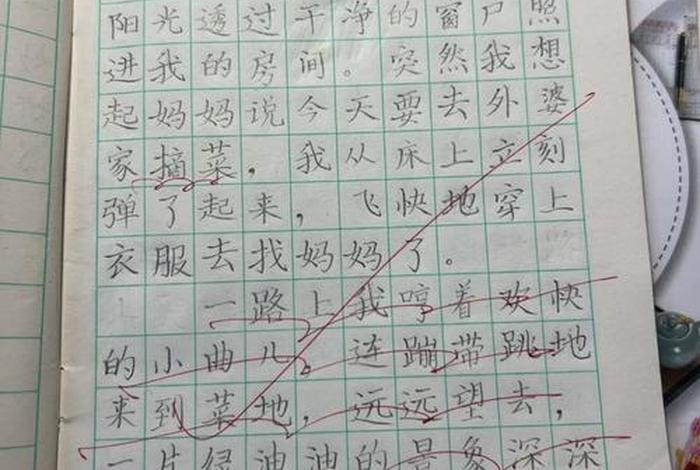 阳光透过干净的窗户照
进我的房间。突然我想
起妈妈说今天要去外婆
家摘菜，我从床上立刻
弹了起来，飞快地穿上
衣服去找妈妈了。
一路上我哼着欢快
的小曲儿，连蹦带跳地
来到菜地，远远望去，
一片绿油油的景象深深